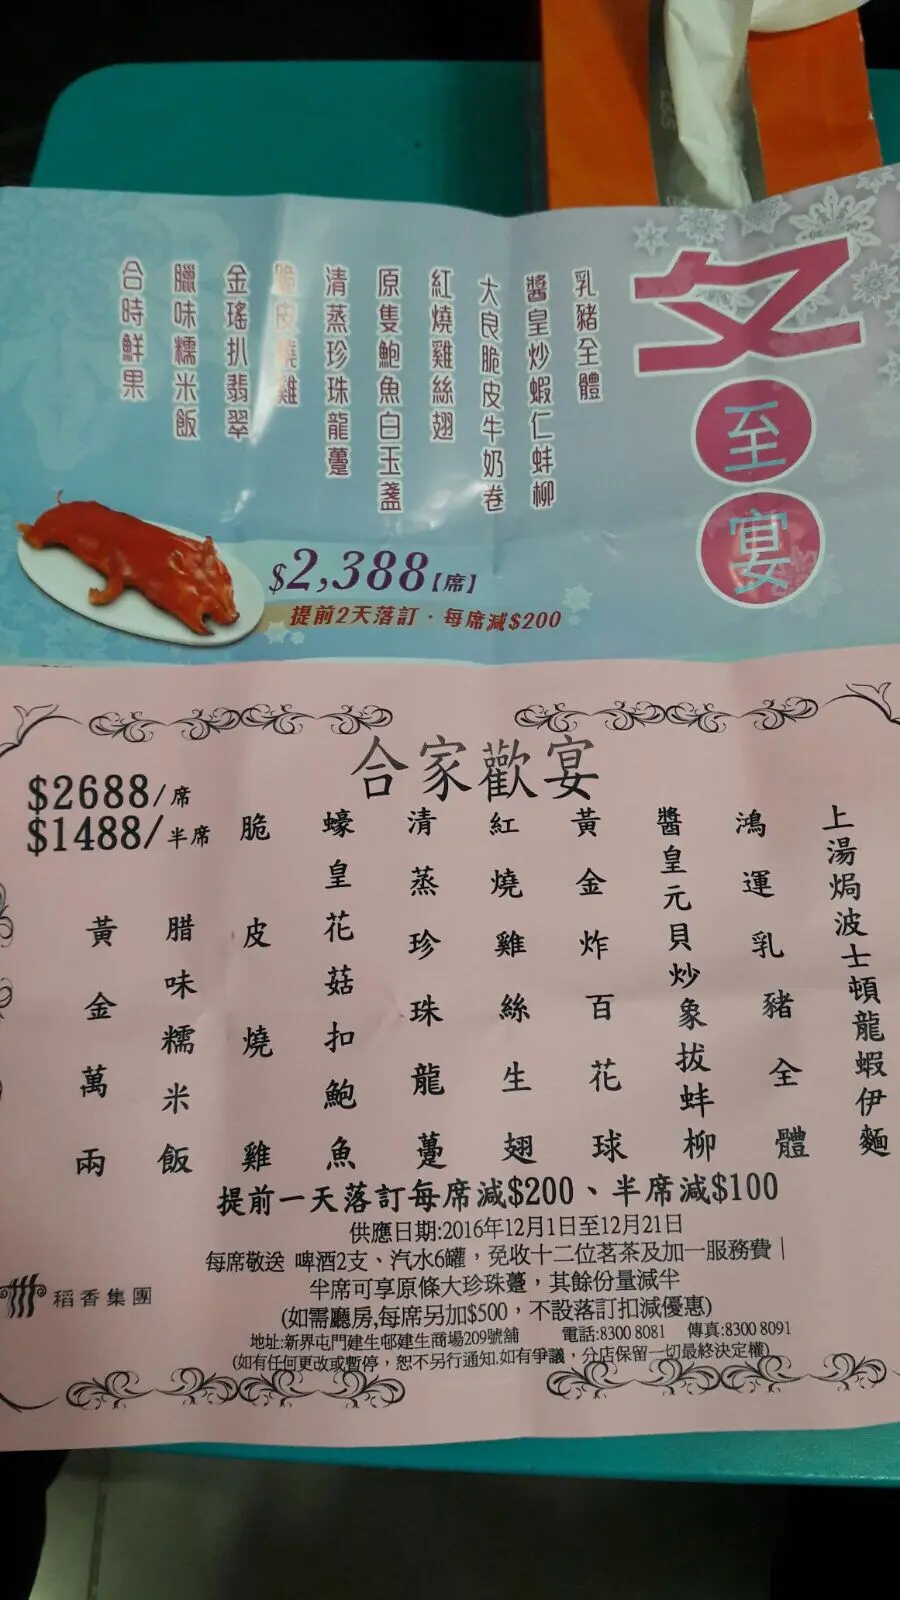 冬至宴
乳豬全體
醬皇炒蝦仁蚌柳
大良脆皮牛奶卷
紅燒雞絲翅
原隻鮑魚白玉盞
清蒸珍珠龍躉
脆皮燒雞
金瑤扒翡翠
臘味糯米飯
合時鮮果
$2,388【席】
提前2天落訂．每席減$200
合家歡宴
$2688/席
$1488/半席
上湯焗波士頓龍蝦伊麵
鴻運乳豬全體
醬皇元貝炒象拔蚌柳
黃金炸百花球
紅燒雞絲生翅
清蒸珍珠龍躉
蠔皇花菇扣鮑魚
脆皮燒雞
腊味糯米飯
黃金萬兩
提前一天落訂每席減$200、半席減$100
供應日期:2016年12月1日至12月21日
每席敬送 啤酒2支、汽水6罐，免收十二位茗茶及加一服務費|
半席可享原條大珍珠躉，其餘份量減半
(如需廳房,每席另加$500，不設落訂扣減優惠)
稻香集團
地址:新界屯門建生邨建生商場209號舖 電話:8300 8081 傳真:8300 8091
(如有任何更改或暫停，恕不另行通知.如有爭議，分店保留一切最終決定權)